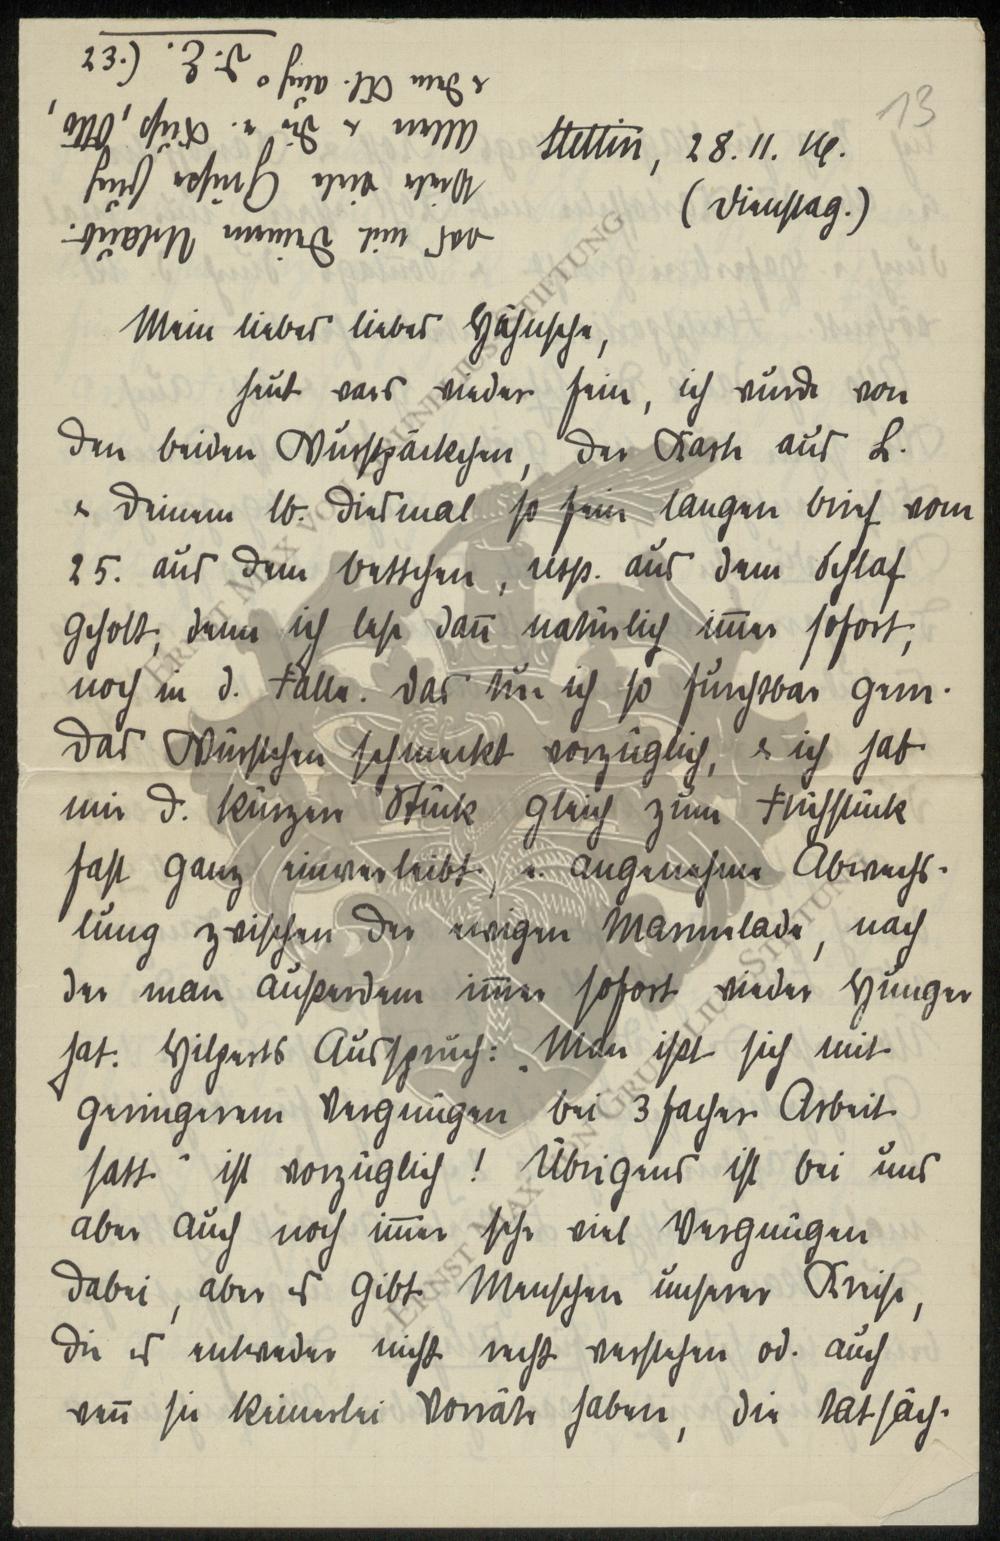 13
Stettin, 28.11.16.
(Dienstag.)
Mein lieber lieber Hähnsche,
heut wars wieder fein, ich wurde von
den beiden Wurstpäckchen, der Karte aus L.
& Deinem lb. diesmal so fein langen Brief vom
25. aus dem Bettchen, resp. aus dem Schlaf
geholt, denn ich lese dan̅ natürlich im̅er sofort,
noch in d. Falle. Das tue ich so furchtbar gern.
Das Würstchen schmeckt vorzüglich, & ich hab
mir d. kurzen Stück gleich zum Frühstück
fast ganz einverleibt, e. angenehme Abwechs-
lung zwischen der ewigen Marmelade, nach
der man außerdem im̅er sofort wieder Hunger
hat. Hilperts Ausspruch: „Man ißt sich mit
geringerem Vergnügen bei 3facher Arbeit
satt“ ist vorzüglich! Übrigens ist bei uns
aber auch noch im̅er sehr viel Vergnügen
dabei, aber es gibt Menschen unserer Kreise,
die es entweder nicht recht verstehen od. auch
wen̅ sie keinerlei Vorräte haben, die tatsäch-
das mit Deinem Urlaub.
Viele viele Grüße Euch
Allen & Dir e. Kuß, Otto,
& dem Kl. auch
D. E. (32)
ERNST MAX VON GRUNELIUS-STIFTUNG
ERNST MAX VON GRUNELIUS-STIFTUNG